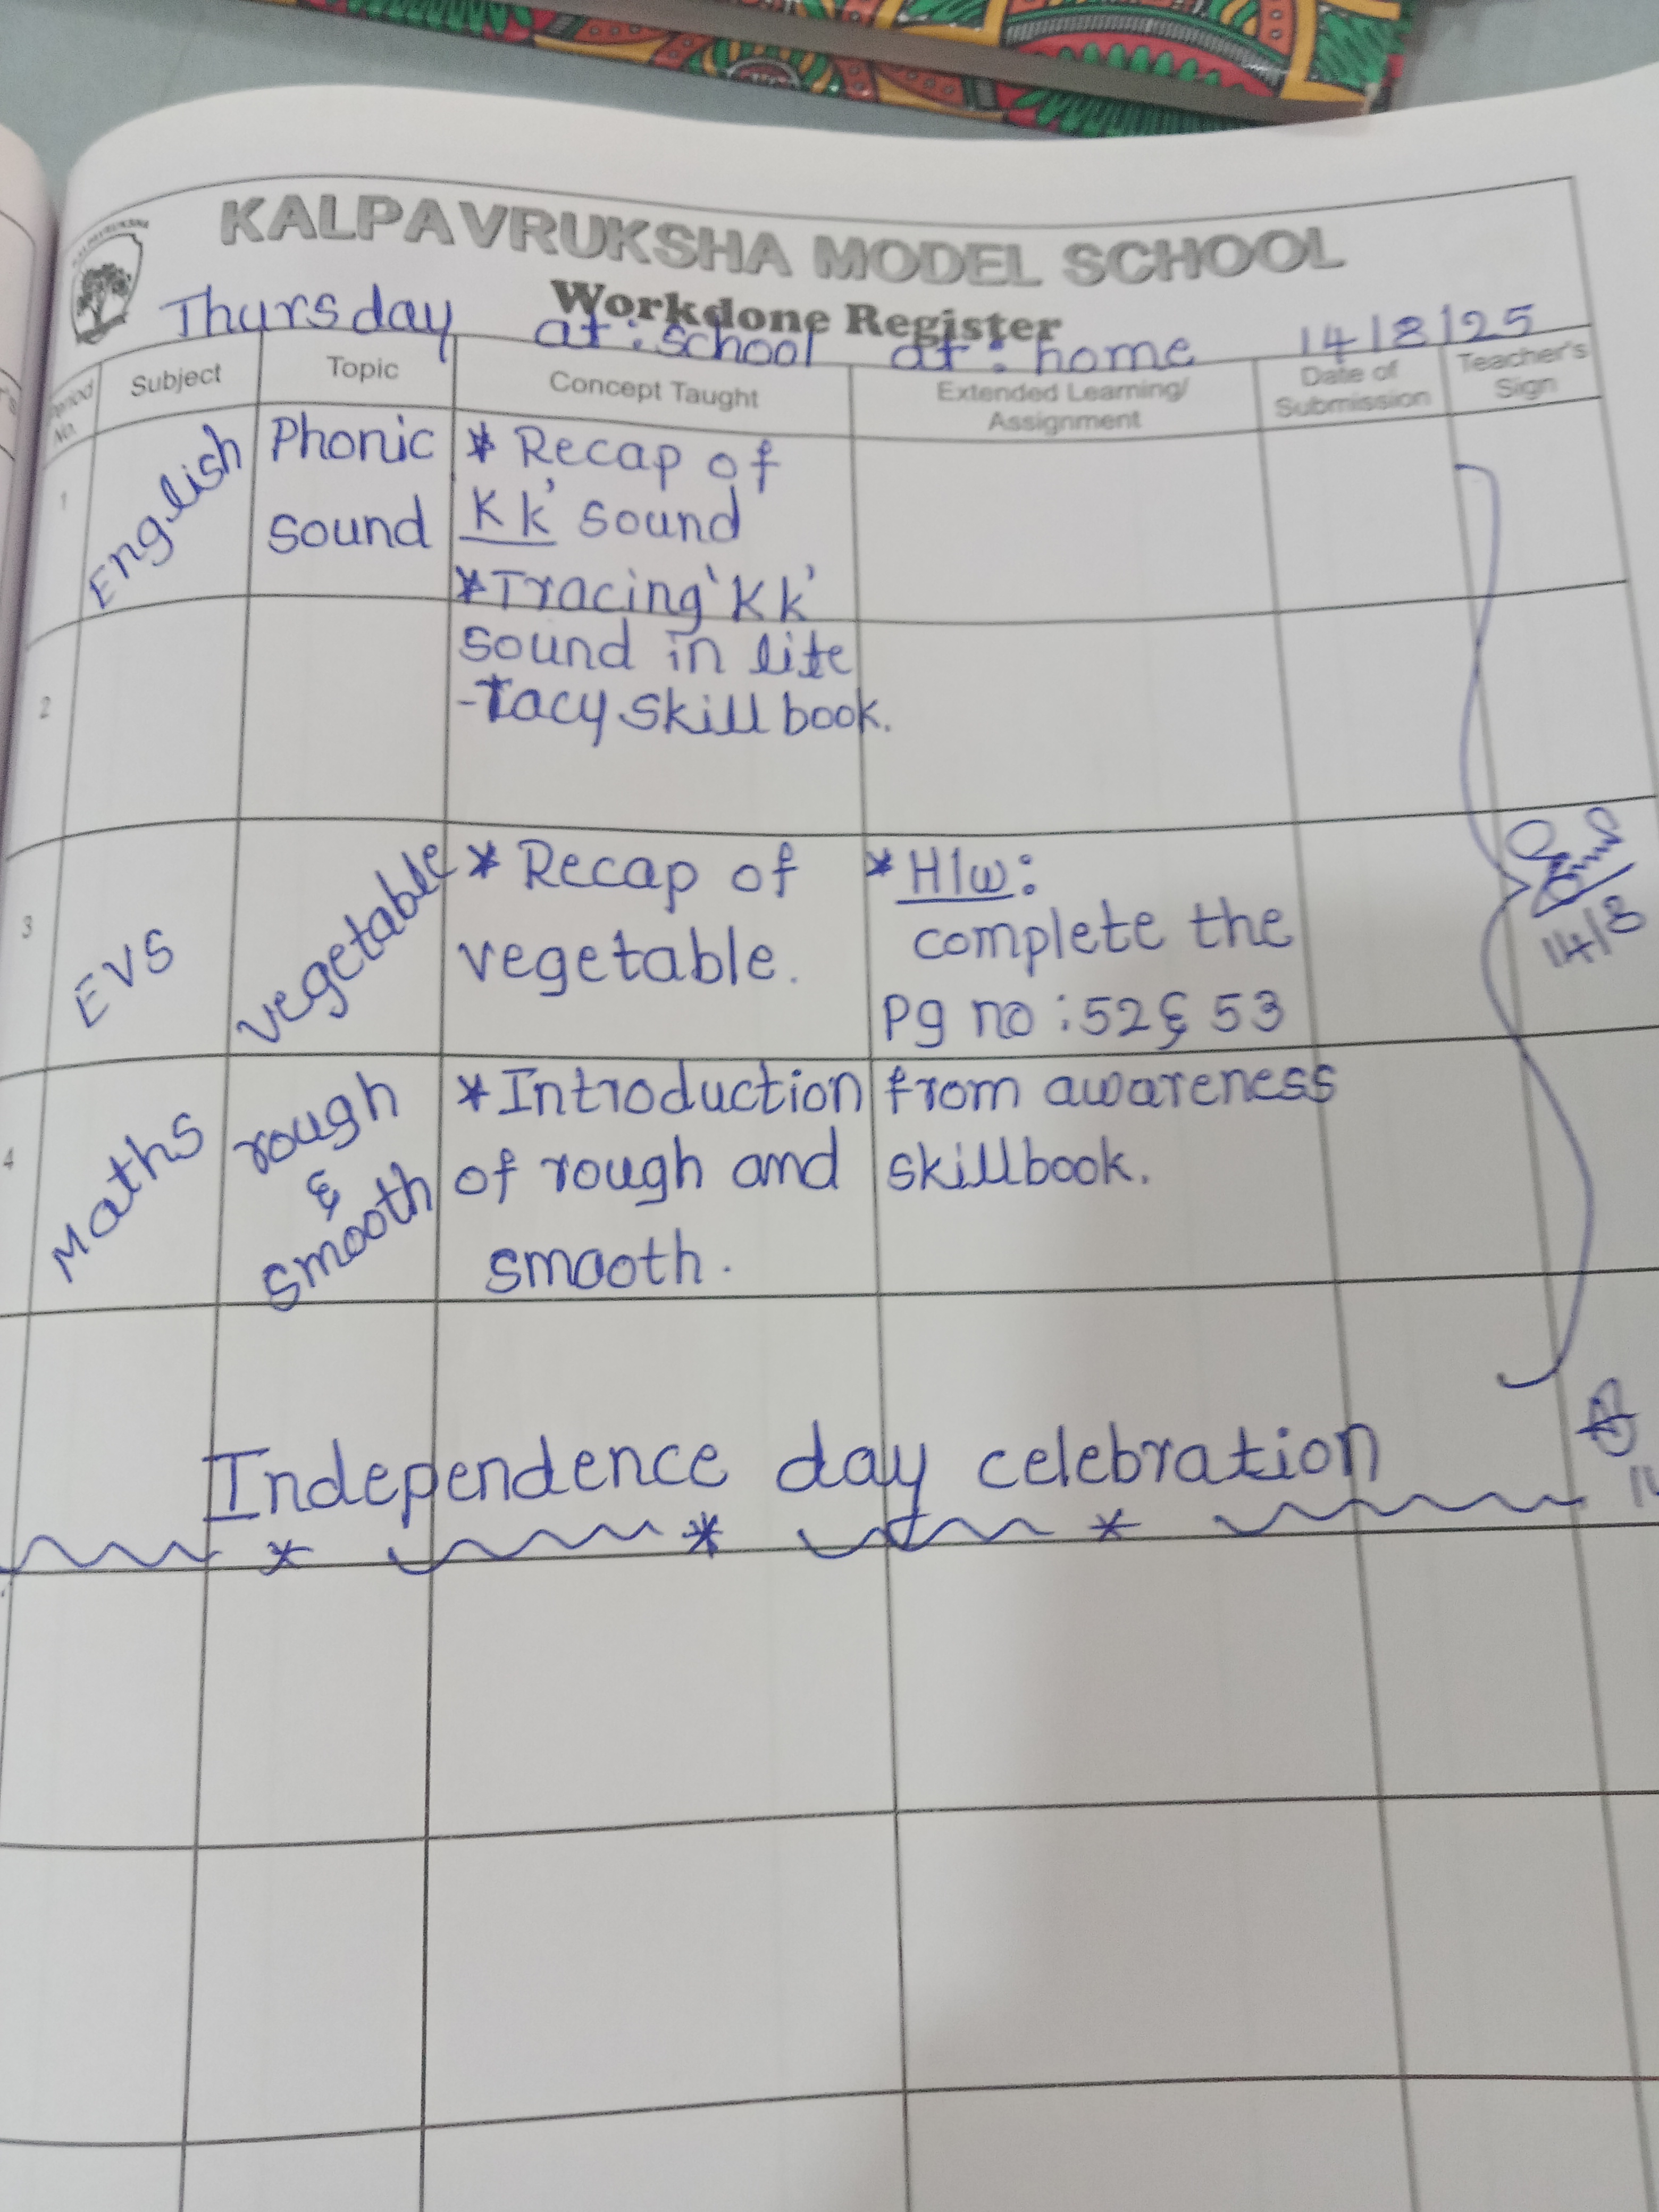 KALPAVRUKSHA
KALPAVRUKSHA MODEL SCHOOL
Workdone Register
Thursday at: school at: home 14/8/25
Period No. Subject Topic Concept Taught Extended Learning/ Assignment Date of Submission Teacher's Sign
1 English Phonic * Recap of
sound Kk' sound
*Tracing 'Kk'
sound in lite
2 -racy skill book.
3 EVS vegetable * Recap of * H/w:
vegetable. complete the
Pg no : 52 & 53
4 Maths rough *Introduction from awareness
& of rough and skillbook.
smooth smooth.
14/8
Independence day celebration